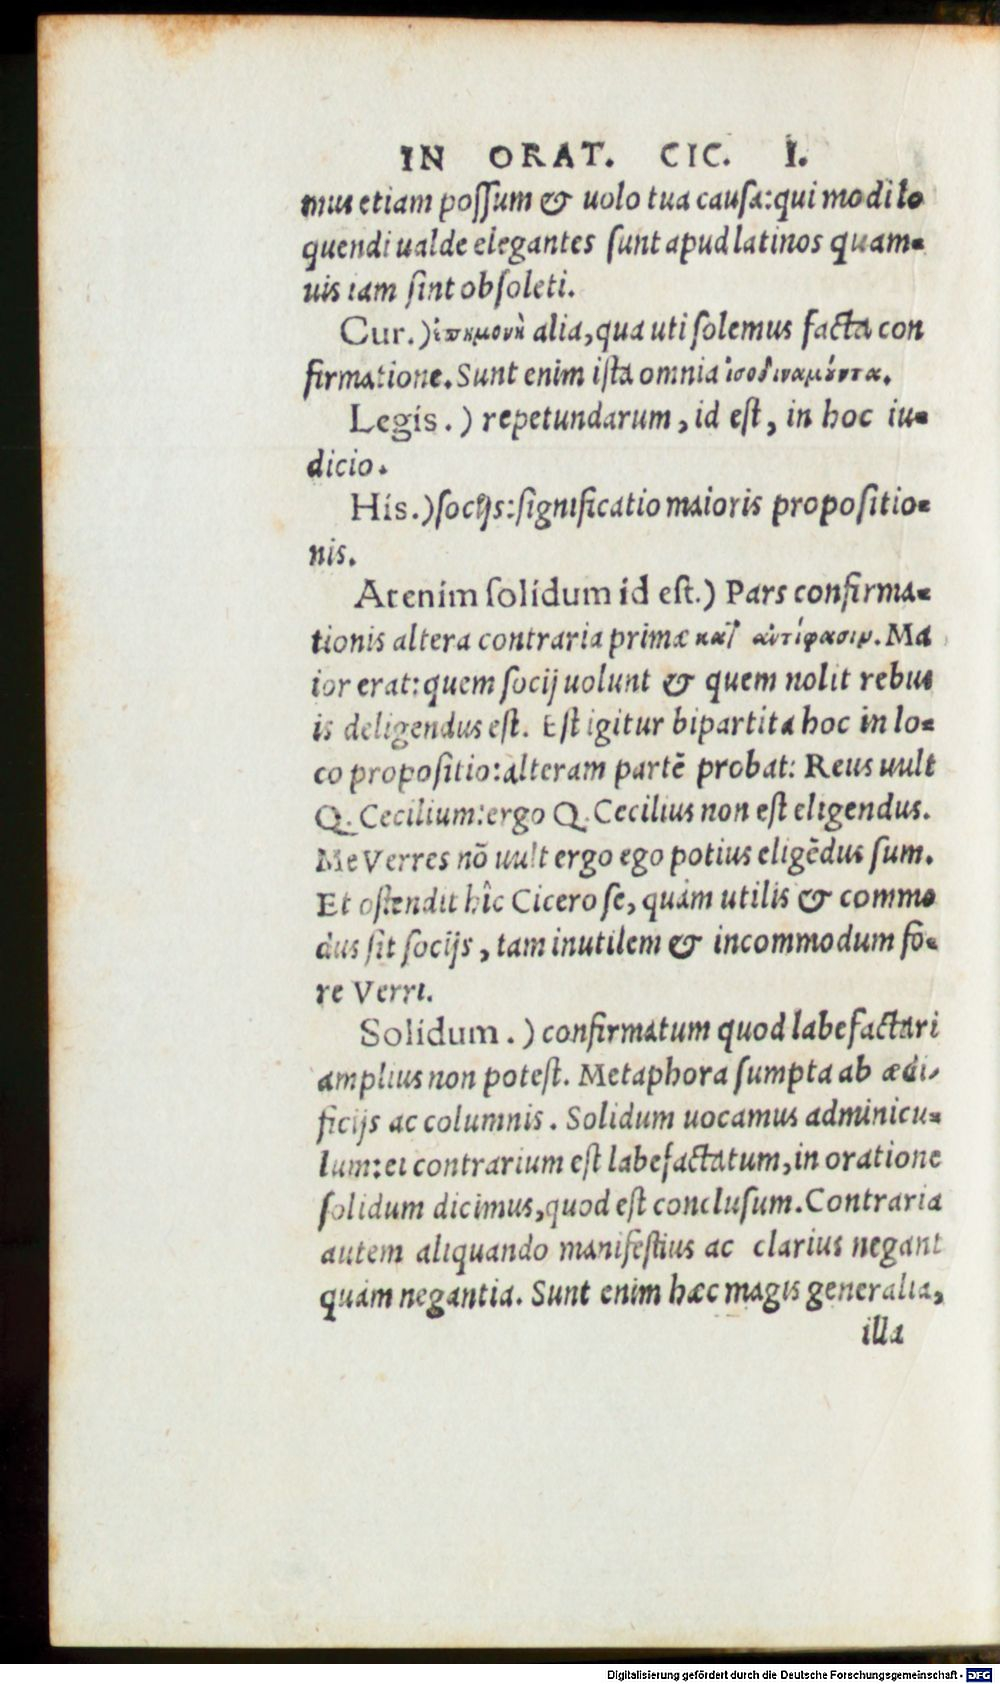 IN ORAT. CIC. I.
mus etiam possum & uolo tua causa: qui modi lo
quendi ualde elegantes sunt apud latinos quam=
uis iam sint obsoleti.
Cur.) ἐπιμονὴ alia, qua uti solemus facta con
firmatione. Sunt enim ista omnia ἰσοδιναμȣ́ντα.
Legis.) repetundarum, id est, in hoc iu=
dicio.
His.) socijs: significatio maioris propositio=
nis.
At enim solidum id est.) Pars confirma=
tionis altera contraria primæ κατ̓ ἀντίφασιν. Ma
ior erat: quem socij uolunt & quem nolit rebus
is deligendus est. Est igitur bipartita hoc in lo=
co propositio: alteram partē probat: Reus uult
Q. Cecilium: ergo Q. Cecilius non est eligendus.
Me Verres nō uult ergo ego potius eligēdus sum.
Et ostendit hîc Cicero se, quàm utilis & commo
dus sit socijs, tam inutilem & incommodum fo=
re Verri.
Solidum.) confirmatum quod labefactari
amplius non potest. Metaphora sumpta ab ædi=
ficijs ac columnis. Solidum uocamus adminicu=
lum: ei contrarium est labefactatum, in oratione
solidum dicimus, quod est conclusum. Contraria
autem aliquando manifestius ac clarius negant
quàm negantia. Sunt enim hæc magis generalia,
illa
Digitalisierung gefördert durch die Deutsche Forschungsgemeinschaft - DFG